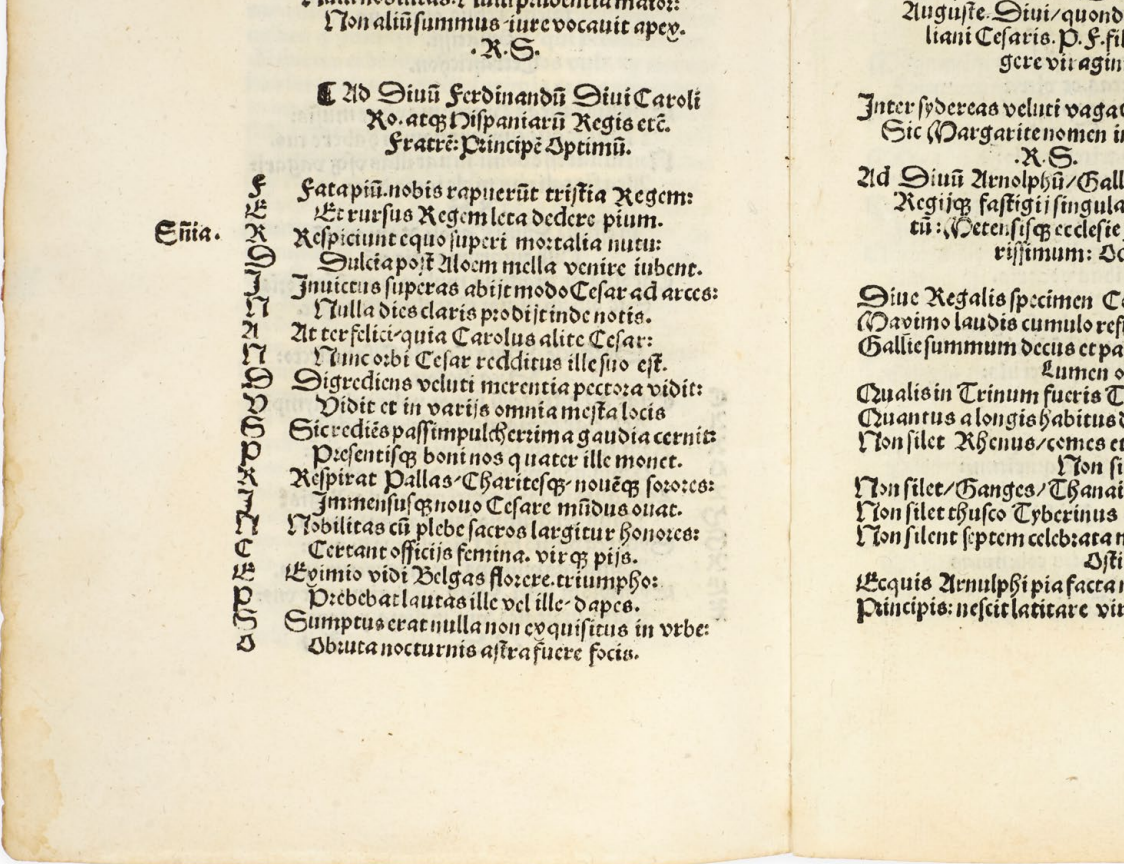 Non aliū summus iure vocavit apex.
.R.S.
⸿ Ad Diuū Ferdinandū Diui Caroli
Ro. atqꝫ Hispaniarū Regis etc̄.
Fratrē: Principē Optimū.
F Fata piū. nobis rapuerūt tristia Regem:
E Et rursus Regem leta dedere pium.
Sñia. R Respiciunt equo superi mortalia nutu:
D Dulcia post Aloem mella venire iubent.
I Inuictus superas abijt modo Cesar ad arces:
N Nulla dies claris prodijt inde notis.
A At ter felici/quia Carolus alite Cesar:
N Nunc orbi Cesar redditus ille suo est.
D Digrediens veluti merentia pectora vidit:
V Vidit et in varijs omnia mesta locis
S Sic rediēs passim pulcherrima gaudia cernit:
P Presentisqꝫ boni nos quater ille monet.
R Respirat Pallas/Charitesqꝫ/nouēqꝫ sorores:
I Immensusqꝫ nouo Cesare mūdus ouat.
N Nobilitas cū plebe sacros largitur honores:
C Certant officijs femina. virqꝫ pijs.
E Eximio vidi Belgas florere. triumpho:
P Prebebat lautas ille vel ille/dapes.
S Sumptus erat nulla non exquisitus in vrbe:
O Obruta nocturnis astra fuere focis.
Auguste. Diui/quond
liani Cesaris. P. F. fil
gere viragin
Inter sydereas veluti vagat
Sic Margarite nomen i
.R.S.
Ad Diuū Arnolphū/Gall
Regijqꝫ fastigij singula
tū: Metensisqꝫ ecclesie
rissimum: Oc
Diue Regalis specimen C
Maximo laudis cumulo ref
Gallie summum decus et pa
Lumen o
Qualis in Trinum fueris T
Quantus a longis habitus
Non silet Rhenus/comes et
Non si
Non silet/Ganges/Thanai
Non silet thusco Tyberinus
Non silent septem celebrata
Osti
Ecquis Arnulphi pia facta
Principis: nescit latitare vir